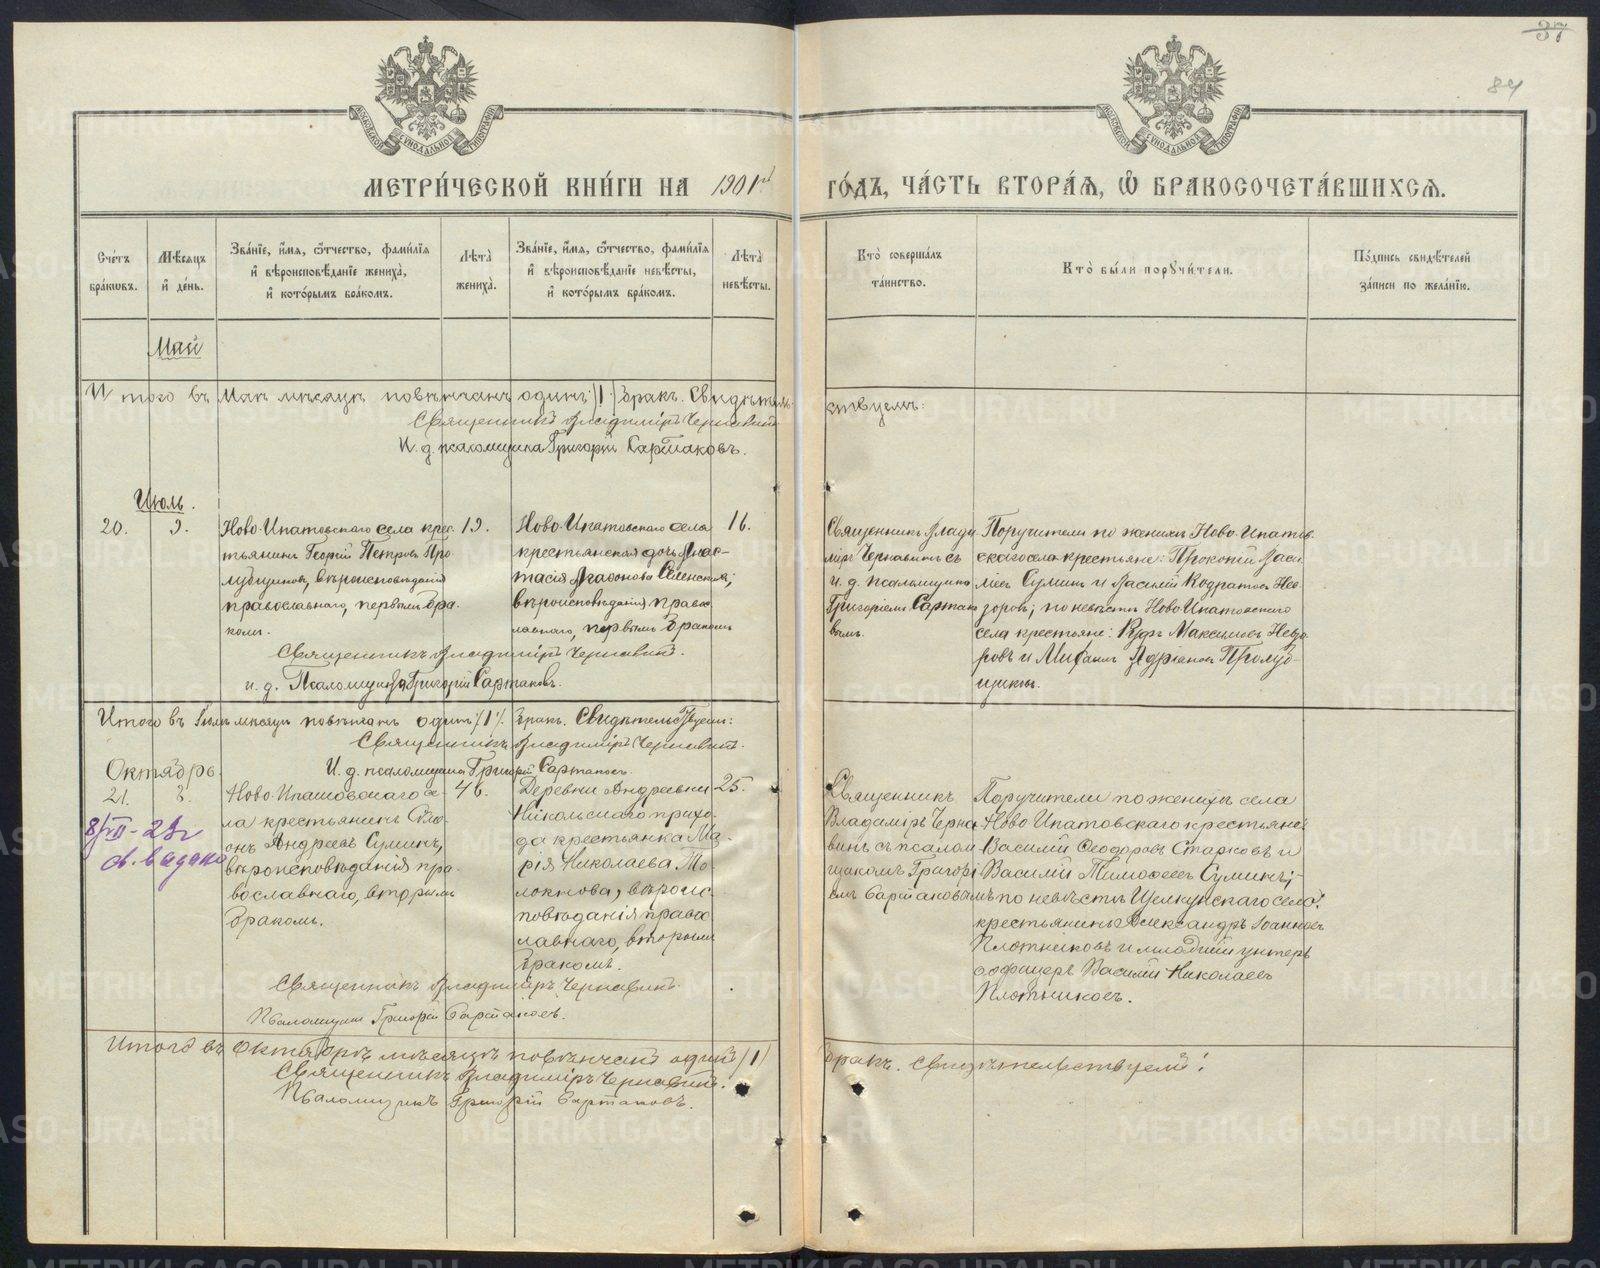 37
84
МОСКОВСКОЙ СѴНОДАЛЬНОЙ ТИПОГРАФІИ
МОСКОВСКОЙ СѴНОДАЛЬНОЙ ТИПОГРАФІИ
МЕТРИ́ЧЕСКОЙ КНИ́ГИ НА 1901й ГО́ДЪ, ЧА́СТЬ ВТОРА́Ѧ, Ѽ БРАКОСОЧЕТА́ВШИХСѦ.
Сче́тъ бра́кѡвъ.
Мѣ́сѧцъ и҆ де́нь.
Зва́нїе, и҆́мѧ, ѻ҆́тчество, фами́лїѧ и҆ вѣроисповѣ́данїе жениха̀, и҆ кото́рымъ бра́комъ.
Лѣ́та жениха̀.
Зва́нїе, и҆́мѧ, ѻ҆́тчество, фами́лїѧ и҆ вѣроисповѣ́данїе невѣ́сты, и҆ кото́рымъ бра́комъ.
Лѣ́та невѣ́сты.
Кто̀ соверша́лъ та́инство.
Кто̀ бы́ли порꙋчи́тели.
По́дпись свидѣ́телей за́писи по жела́нїю.
Май
Итого въ Маѣ мѣсяцѣ повѣнчанъ одинъ /1/ бракъ. Свидѣтель-
ствуемъ:
Священникъ Владиміръ Чернавинъ
И. д. псаломщика Григорій Сартаковъ.
Июль.
20.
9.
Ново-Ипатовскаго села крес-
тьянинъ Георгій Петровъ Про
лубщиковъ, вѣроисповѣданія
православнаго, первымъ бра-
комъ.
19.
Ново-Ипатовскаго села
крестьянская дочь Анас-
тасія Агафонова
вѣроисповѣданія правос
лавнаго, первымъ бракомъ
16.
Священникъ Влади
міръ Чернавинъ съ
и. д. псаломщика
Григоріемъ Сартако
вымъ.
Поручители по женихѣ Ново-Ипатов-
скаго села крестьяне: Прокопій Васи
ліевъ Суминъ и Василій Кодратовъ Нев
зоровъ; по невѣстѣ Ново-Ипатовскаго
села крестьяне: Максимовъ Невзо
ровъ и Михаилъ Адріановъ Пролуб-
щиковъ.
Священникъ Владиміръ Чернавинъ.
и. д. Псаломщика Григорій Сартаковъ.
Итого въ Июлѣ мѣсяцѣ повѣнчанъ одинъ /1/ бракъ. Свидѣтельствуемъ:
Священникъ Владиміръ Чернавинъ.
И. д. псаломщика Григорій Сартаковъ.
Октябрь.
21.
8/VII-29г
Ново-Ипатовскаго се-
ла крестьянинъ
Андреевъ Суминъ,
вѣроисповѣданія пра-
вославнаго, вторымъ
бракомъ.
46.
Деревни Андреевки
Никольскаго прихо-
да крестьянка Ма-
рія Николаева Мо-
локнова, вѣроис-
повѣданія правос
лавнаго, вторымъ
бракомъ.
25.
Священникъ
Владиміръ Черна
винъ съ псалом
щикомъ Григорі
емъ Сартаковымъ
Поручители по женихѣ села
Ново-Ипатовскаго крестьяне:
Василій Ѳеодоровъ Старковъ и
Василій Тимоѳеевъ Суминъ;
по невѣстѣ Щелкунскаго села:
крестьянинъ Александръ Іоанновъ
Плотниковъ и младшій унтеръ
офицеръ Василій Николаевъ
Плотниковъ.
Священникъ Владиміръ Чернавинъ.
Псаломщикъ Григорій Сартаковъ.
Итого въ Октябрѣ мѣсяцѣ повѣнчанъ одинъ /1/
бракъ. Свидѣтельствуемъ:
Священникъ Владиміръ Чернавинъ.
Псаломщикъ Григорій Сартаковъ.
METRIKI.GASO-URAL.RU